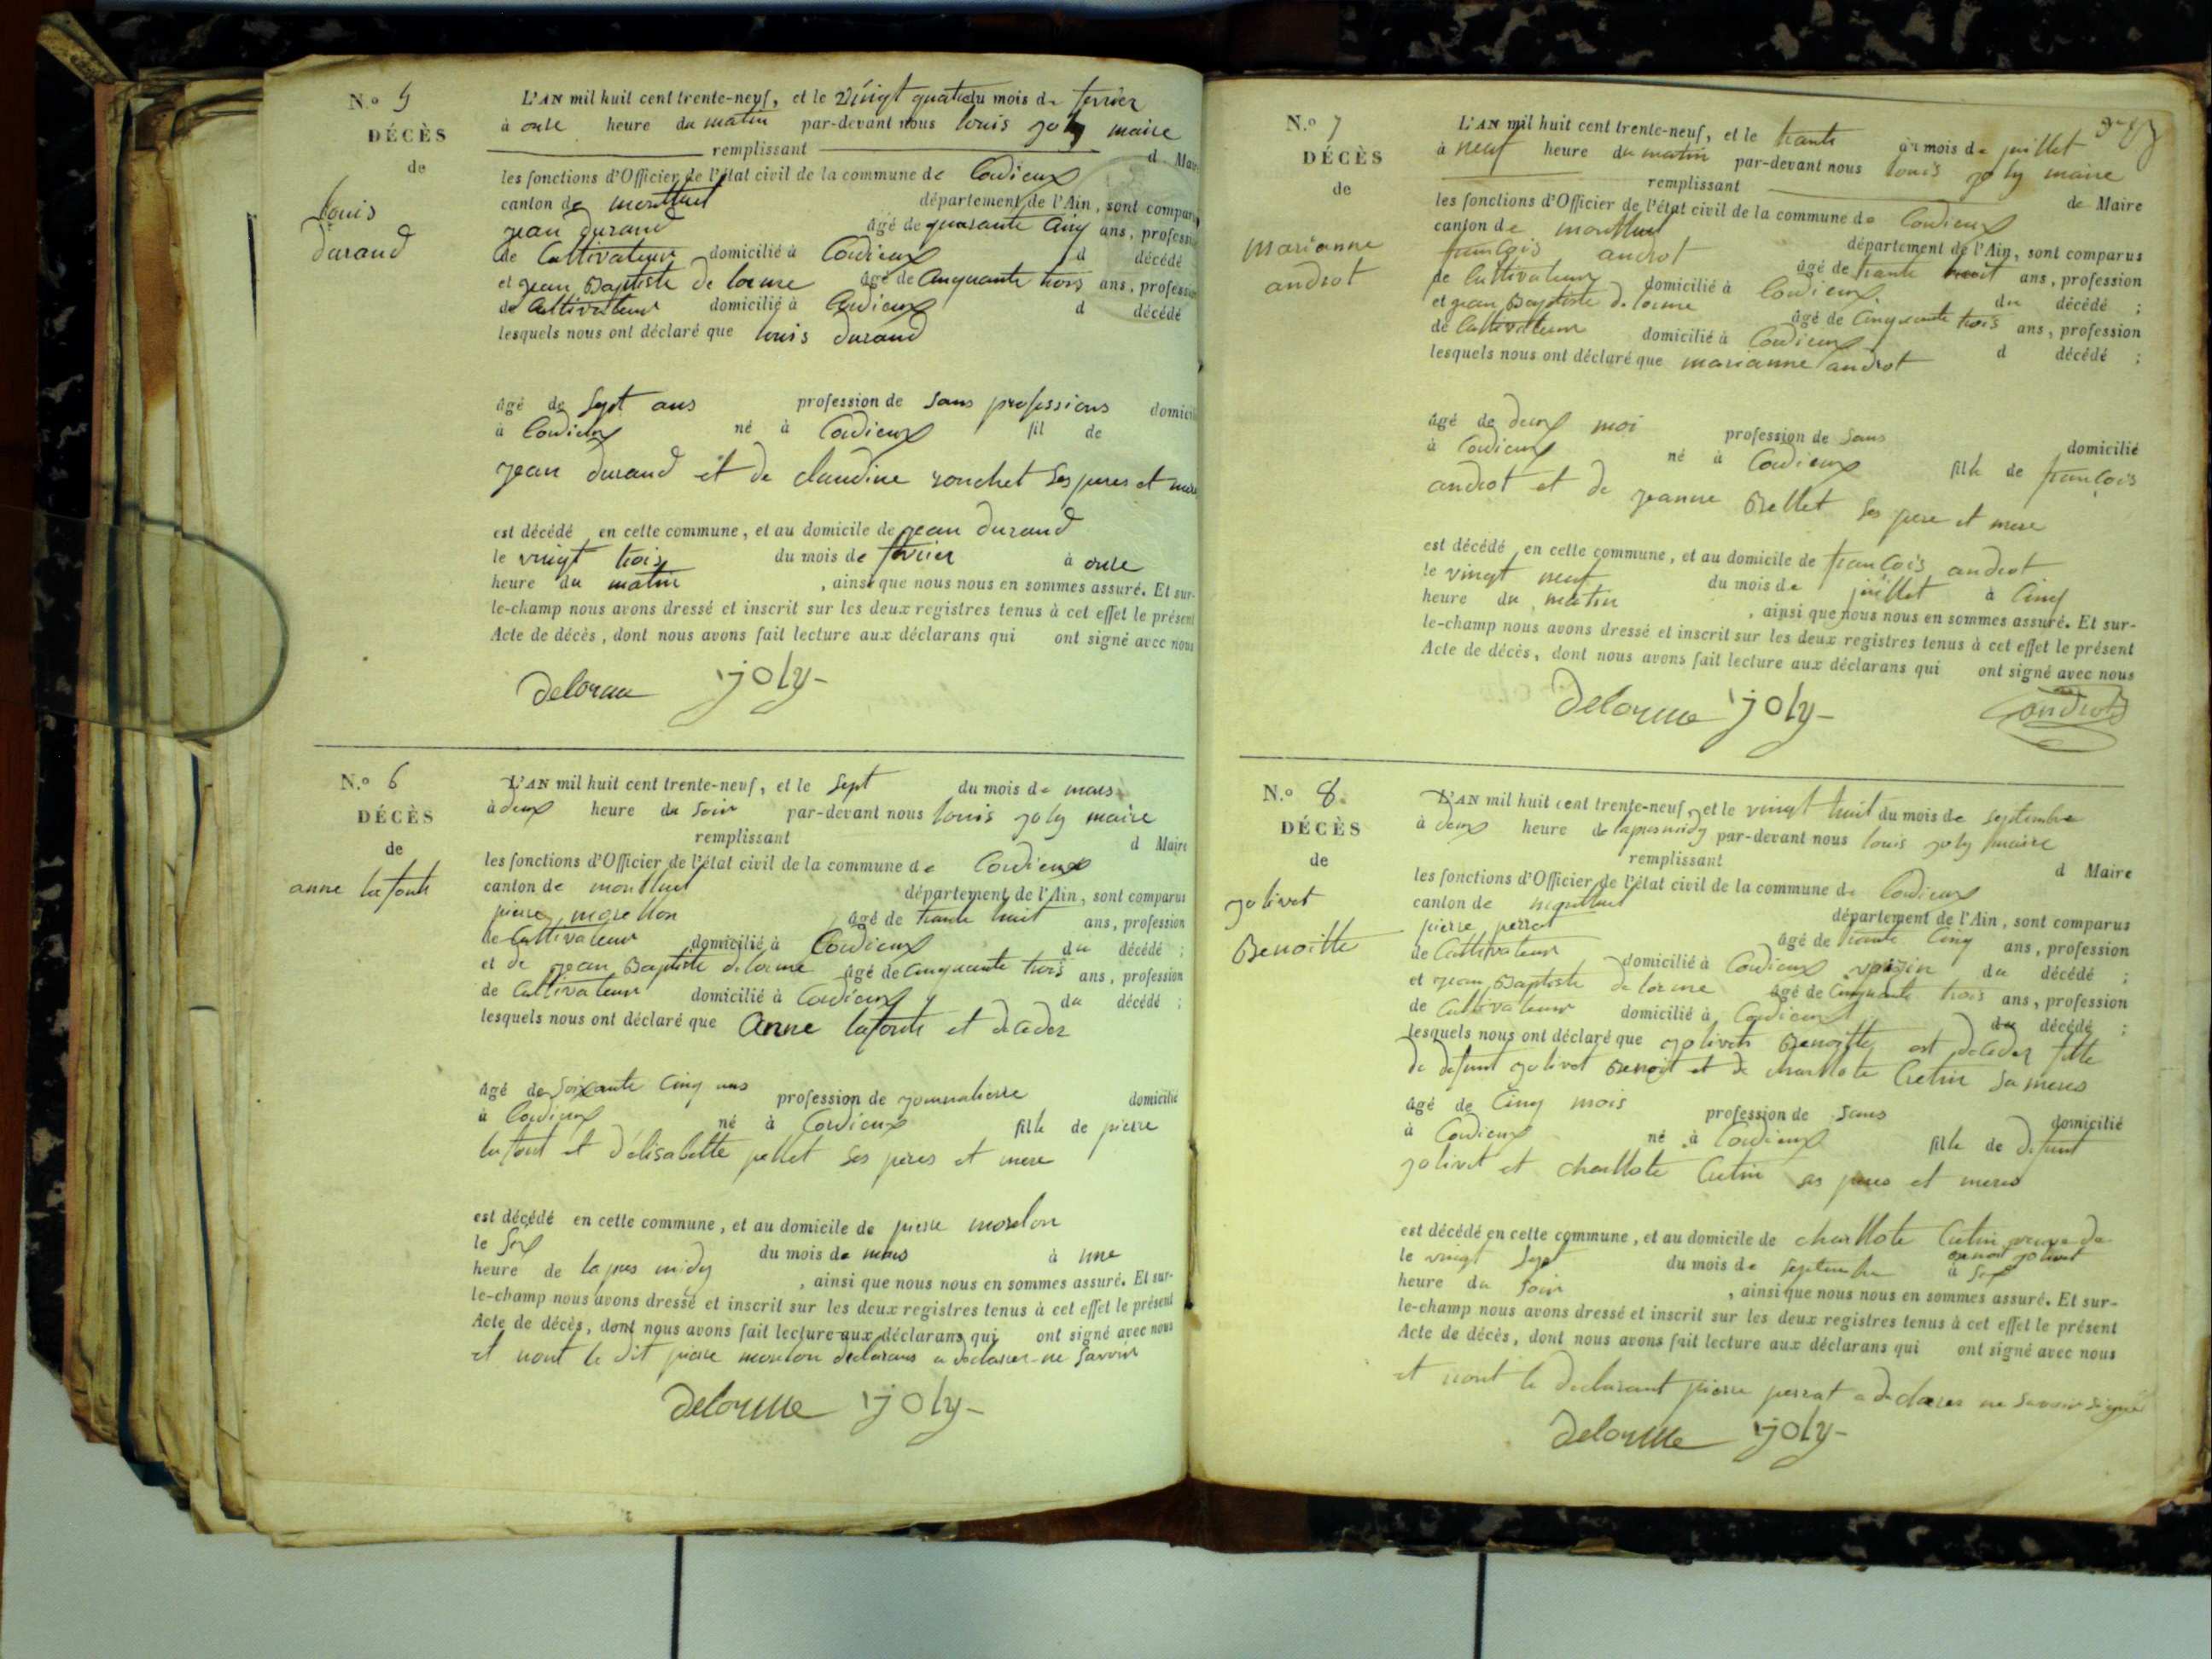 N.o 5
DÉCÈS
de
louis
durand
L'AN mil huit cent trente-neuf, et le vingt quatre du mois de fevrier
à onse heure du matin par-devant nous louis joly maire
remplissant d Maire
les fonctions d'Officier de l'état civil de la commune de Cordieux
canton de montluel département de l'Ain, sont comparus
jean durand âgé de quarante cinq ans, profession
de Cultivateur domicilié à Cordieux d décédé
et jean Baptiste de lorme âgé de Cinquante trois ans, profession
de Cultivateur domicilié à Cordieux d décédé
lesquels nous ont déclaré que louis durand
âgé de sept ans profession de sans professions domicilié
à Cordieux né à Cordieux fil de
jean durand et de claudine ronchet ses peres et mere
est décédé en cette commune, et au domicile de jean durand
le vingt trois du mois de fevrier à onse
heure du matin , ainsi que nous nous en sommes assuré. Et sur-
le-champ nous avons dressé et inscrit sur les deux registres tenus à cet effet le présent
Acte de décès, dont nous avons fait lecture aux déclarans qui ont signé avec nous
Delorme joly
N.o 6
DÉCÈS
de
anne lafont
L'AN mil huit cent trente-neuf, et le sept du mois de mars
à deux heure du soir par-devant nous louis joly maire
remplissant d Maire
les fonctions d'Officier de l'état civil de la commune de Cordieux
canton de montluel département de l'Ain, sont comparus
pierre morellon âgé de trante huit ans, profession
de Cultivateur domicilié à Cordieux du décédé ;
et de jean Baptiste delorme âgé de Cinquante trois ans, profession
de Cultivateur domicilié à Cordieux du décédé ;
lesquels nous ont déclaré que Anne lafont et deceder
âgé de soixante cinq ans profession de journalierre domicilié
à Cordieux né à Cordieux fille de pierre
lafont et d'élisabette pellet ses peres et mere
est décédé en cette commune, et au domicile de pierre morelon
le six du mois de mars à une
heure de lapres midy , ainsi que nous nous en sommes assuré. Et sur-
le-champ nous avons dressé et inscrit sur les deux registres tenus à cet effet le présent
Acte de décès, dont nous avons fait lecture aux déclarans qui ont signé avec nous
et nont le dit pierre morelon declarans a declarer ne savoir
Delorme joly
N.o 7
DÉCÈS
de
marianne
androt
L'AN mil huit cent trente-neuf, et le trante du mois de juillet
à neuf heure du matin par-devant nous louis joly maire
remplissant de Maire
les fonctions d'Officier de l'état civil de la commune de Cordieux
canton de montluel département de l'Ain, sont comparus
françois androt âgé de trante ans, profession
de Cultivateur domicilié à Cordieux du décédé ;
et jean Baptiste de lorme âgé de Cinquante trois ans, profession
de Cultivateur domicilié à Cordieux d décédé ;
lesquels nous ont déclaré que marianne androt
âgé de deux moi profession de sans domicilié
à Cordieux né à Cordieux fille de françois
androt et de jeanne Bellet ses pere et mere
est décédé en cette commune, et au domicile de françois androt
le vingt neuf du mois de juillet à Cinq
heure du matin , ainsi que nous nous en sommes assuré. Et sur-
le-champ nous avons dressé et inscrit sur les deux registres tenus à cet effet le présent
Acte de décès, dont nous avons fait lecture aux déclarans qui ont signé avec nous
Delorme joly androt
N.o 8.
DÉCÈS
de
jolivet
Benoitte
L'AN mil huit cent trente-neuf, et le vingt huit du mois de septembre
à deux heure de lapres midy par-devant nous louis joly maire
remplissant d Maire
les fonctions d'Officier de l'état civil de la commune de Cordieux
canton de montluel département de l'Ain, sont comparus
pierre perrat âgé de trante Cinq ans, profession
de Cultivateur domicilié à Cordieux voisin du décédé ;
et jean Baptiste de lorme âgé de Cinquante trois ans, profession
de Cultivateur domicilié à Cordieux du décédé ;
lesquels nous ont déclaré que jolivet Benoitte est deceder fille
de defunt jolivet Benoit et de charllote Cretin sa meres
âgé de Cinq mois profession de sans domicilié
à Cordieux né à Cordieux fille de defunt
jolivet et charllote Cretin ses peres et meres
est décédé en cette commune, et au domicile de charllote Cretin veuve de
benoit jolivet
le vingt sept du mois de septembre à six
heure du soir , ainsi que nous nous en sommes assuré. Et sur-
le-champ nous avons dressé et inscrit sur les deux registres tenus à cet effet le présent
Acte de décès, dont nous avons fait lecture aux déclarans qui ont signé avec nous
et nont le declarant pierre perrat a declarer ne savoir signer
Delorme joly